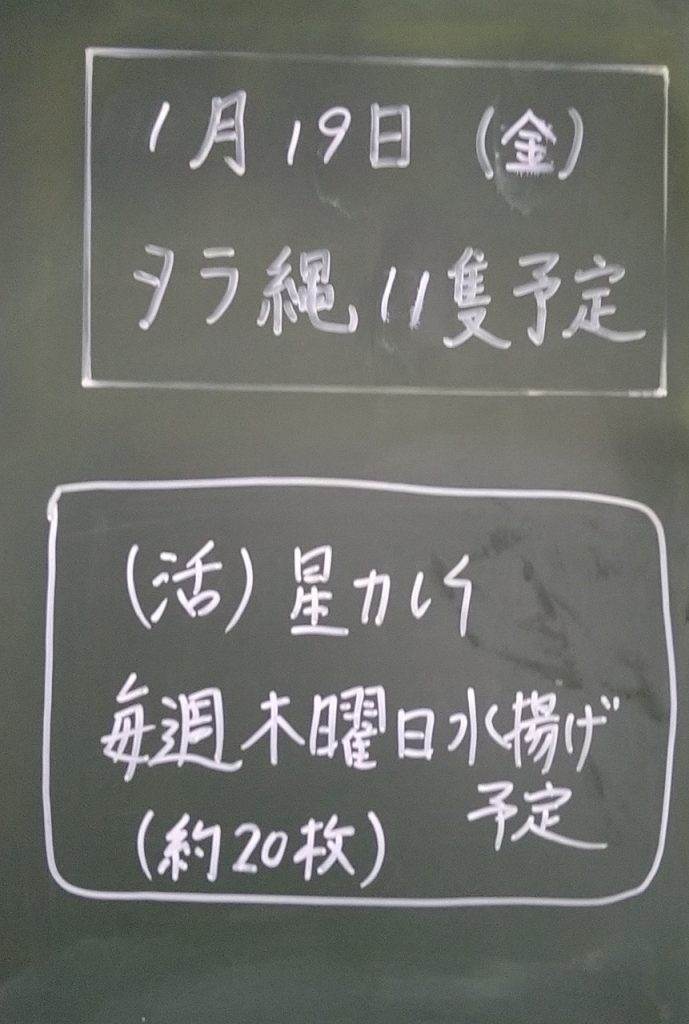 1月19日（金）
タラ縄11隻予定
（活）星カレイ
毎週木曜日水揚げ
予定
（約20枚）